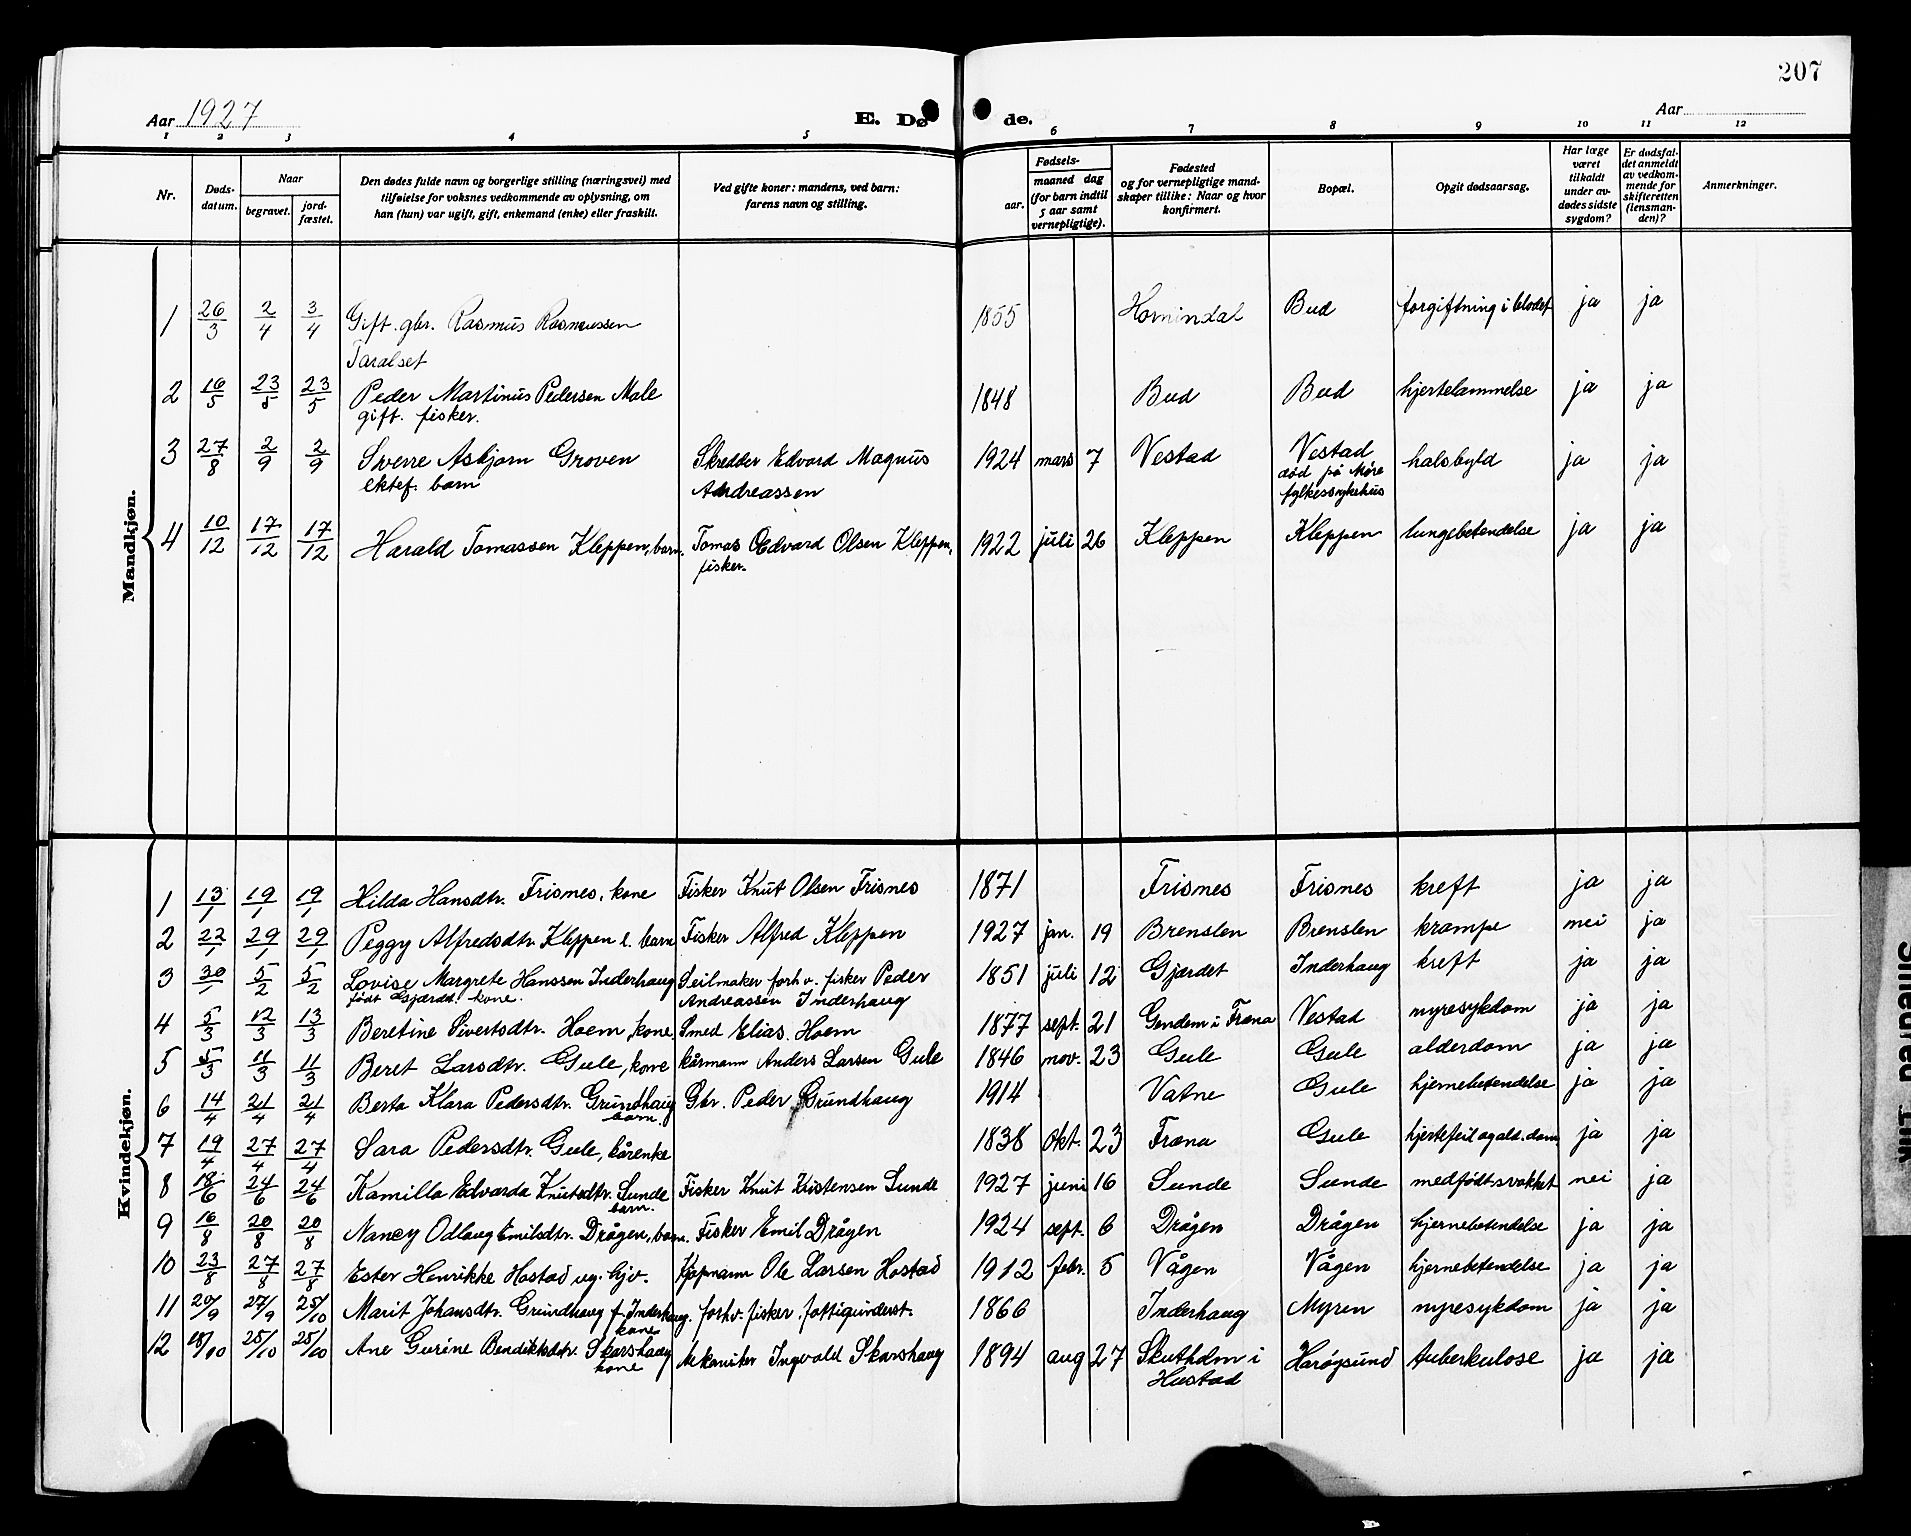 207
Aar 1927
E. Dø de.
Aar
1 2 3 4 5 6 7 8 9 10 11 12
Nr.
Døds-
datum.
Naar
begravet.
jord-
fæstet.
Den dødes fulde navn og borgerlige stilling (næringsvei) med
tilføielse for voksnes vedkommende av oplysning, om
han (hun) var ugift, gift, enkemand (enke) eller fraskilt.
Ved gifte koner: mandens, ved barn:
farens navn og stilling.
Fødsels-
aar.
maaned dag
(for barn indtil
5 aar samt
vernepligtige).
Fødested
og for vernepligtige mand-
skaper tillike: Naar og hvor
konfirmert.
Bopæl.
Opgit dødsaarsag.
Har læge
været
tilkaldt
under av-
dødes sidste
sygdom?
Er dødsfal-
det anmeldt
av vedkom-
mende for
skifteretten
(lensman-
den)?
Anmerkninger.
Mandkjøn.
1 26/3 2/4 3/4 Gift. gbr. Rasmus Rasmussen 1855 Hornindal Bud forgiftning i blodet ja ja
Taralset
2 16/5 23/5 23/5 Peder Martinus Pedersen Male 1848 Bud Bud hjertelammelse ja ja
gift. fisker.
3 27/8 2/9 2/9 Sverre Asbjørn Groven Skredder Edvard Magnus 1924 mars 7 Vestad Vestad halsbyld ja ja
ektef. barn Andreassen død på Møre
fylkessykehus
4 10/12 17/12 17/12 Harald Tomassen Kleppen, barn. Tomas Edvard Olsen Kleppen, 1922 juli 26 Kleppen Kleppen lungebetendelse ja ja
fisker.
Kvindekjøn.
1 13/1 19/1 19/1 Hilda Hansdtr. Frisnes, kone Fisker Knut Olsen Frisnes 1871 Frisnes Frisnes kreft ja ja
2 22/1 29/1 29/1 Peggy Alfredsdtr. Kleppen e. barn Fisker Alfred Kleppen 1927 jan. 19 Brenslen Brenslen krampe nei ja
3 30/1 5/2 5/2 Lovise Margrete Hanssen Inderhaug Seilmaker forhv. fisker Peder 1851 juli 12 Gjærdet Inderhaug kreft ja ja
født Gjærdet. kone. Andreassen Inderhaug
4 5/3 12/3 13/3 Beretine Sivertsdtr. Hoem, kone. Smed Elias Hoem 1877 sept. 21 Gendem i Fræna Vestad nyresykdom ja ja
5 5/3 11/3 11/3 Beret Larsdtr. Gule, kone kårmann Anders Larsen Gule 1846 nov. 23 Gule Gule alderdom ja ja
6 14/4 21/4 21/4 Berta Klara Pedersdtr. Grundhaug Gbr. Peder Grundhaug 1914 Vatne Gule hjernebetendelse ja ja
barn.
7 19/4 27/4 27/4 Sara Pedersdtr. Gule, kårenke 1838 okt. 23 Fræna Gule hjertefeil og ald.dom ja ja
8 18/6 24/6 24/6 Kamilla Edvarda Knutsdtr. Sunde Fisker Knut Kristensen Sunde 1927 juni 16 Sunde Sunde medfødt svakhet nei ja
barn.
9 16/8 20/8 20/8 Nancy Odlaug Emilsdtr. Drågen, barn. Fisker Emil Drågen 1924 sept. 6 Drågen Drågen hjernebetendelse ja ja
10 23/8 27/8 27/8 Ester Henrikke Hostad ug. hjv. Kjøpmann Ole Larsen Hostad 1912 febr. 5 Vågen Vågen hjernebetendelse ja ja
11 20/9 27/9 25/10 Marit Johansdtr. Grundhaug f. Inderhaug. forhv. fisker. fattigunderst. 1866 Inderhaug Myren nyresykdom ja ja
kone
12 18/10 25/10 25/10 Ane Gurine Bendiktsdtr. Skarshaug Mekaniker Ingvald Skarshaug 1894 aug 27 Skutholm i Harøysund tuberkulose ja ja
kone Hustad